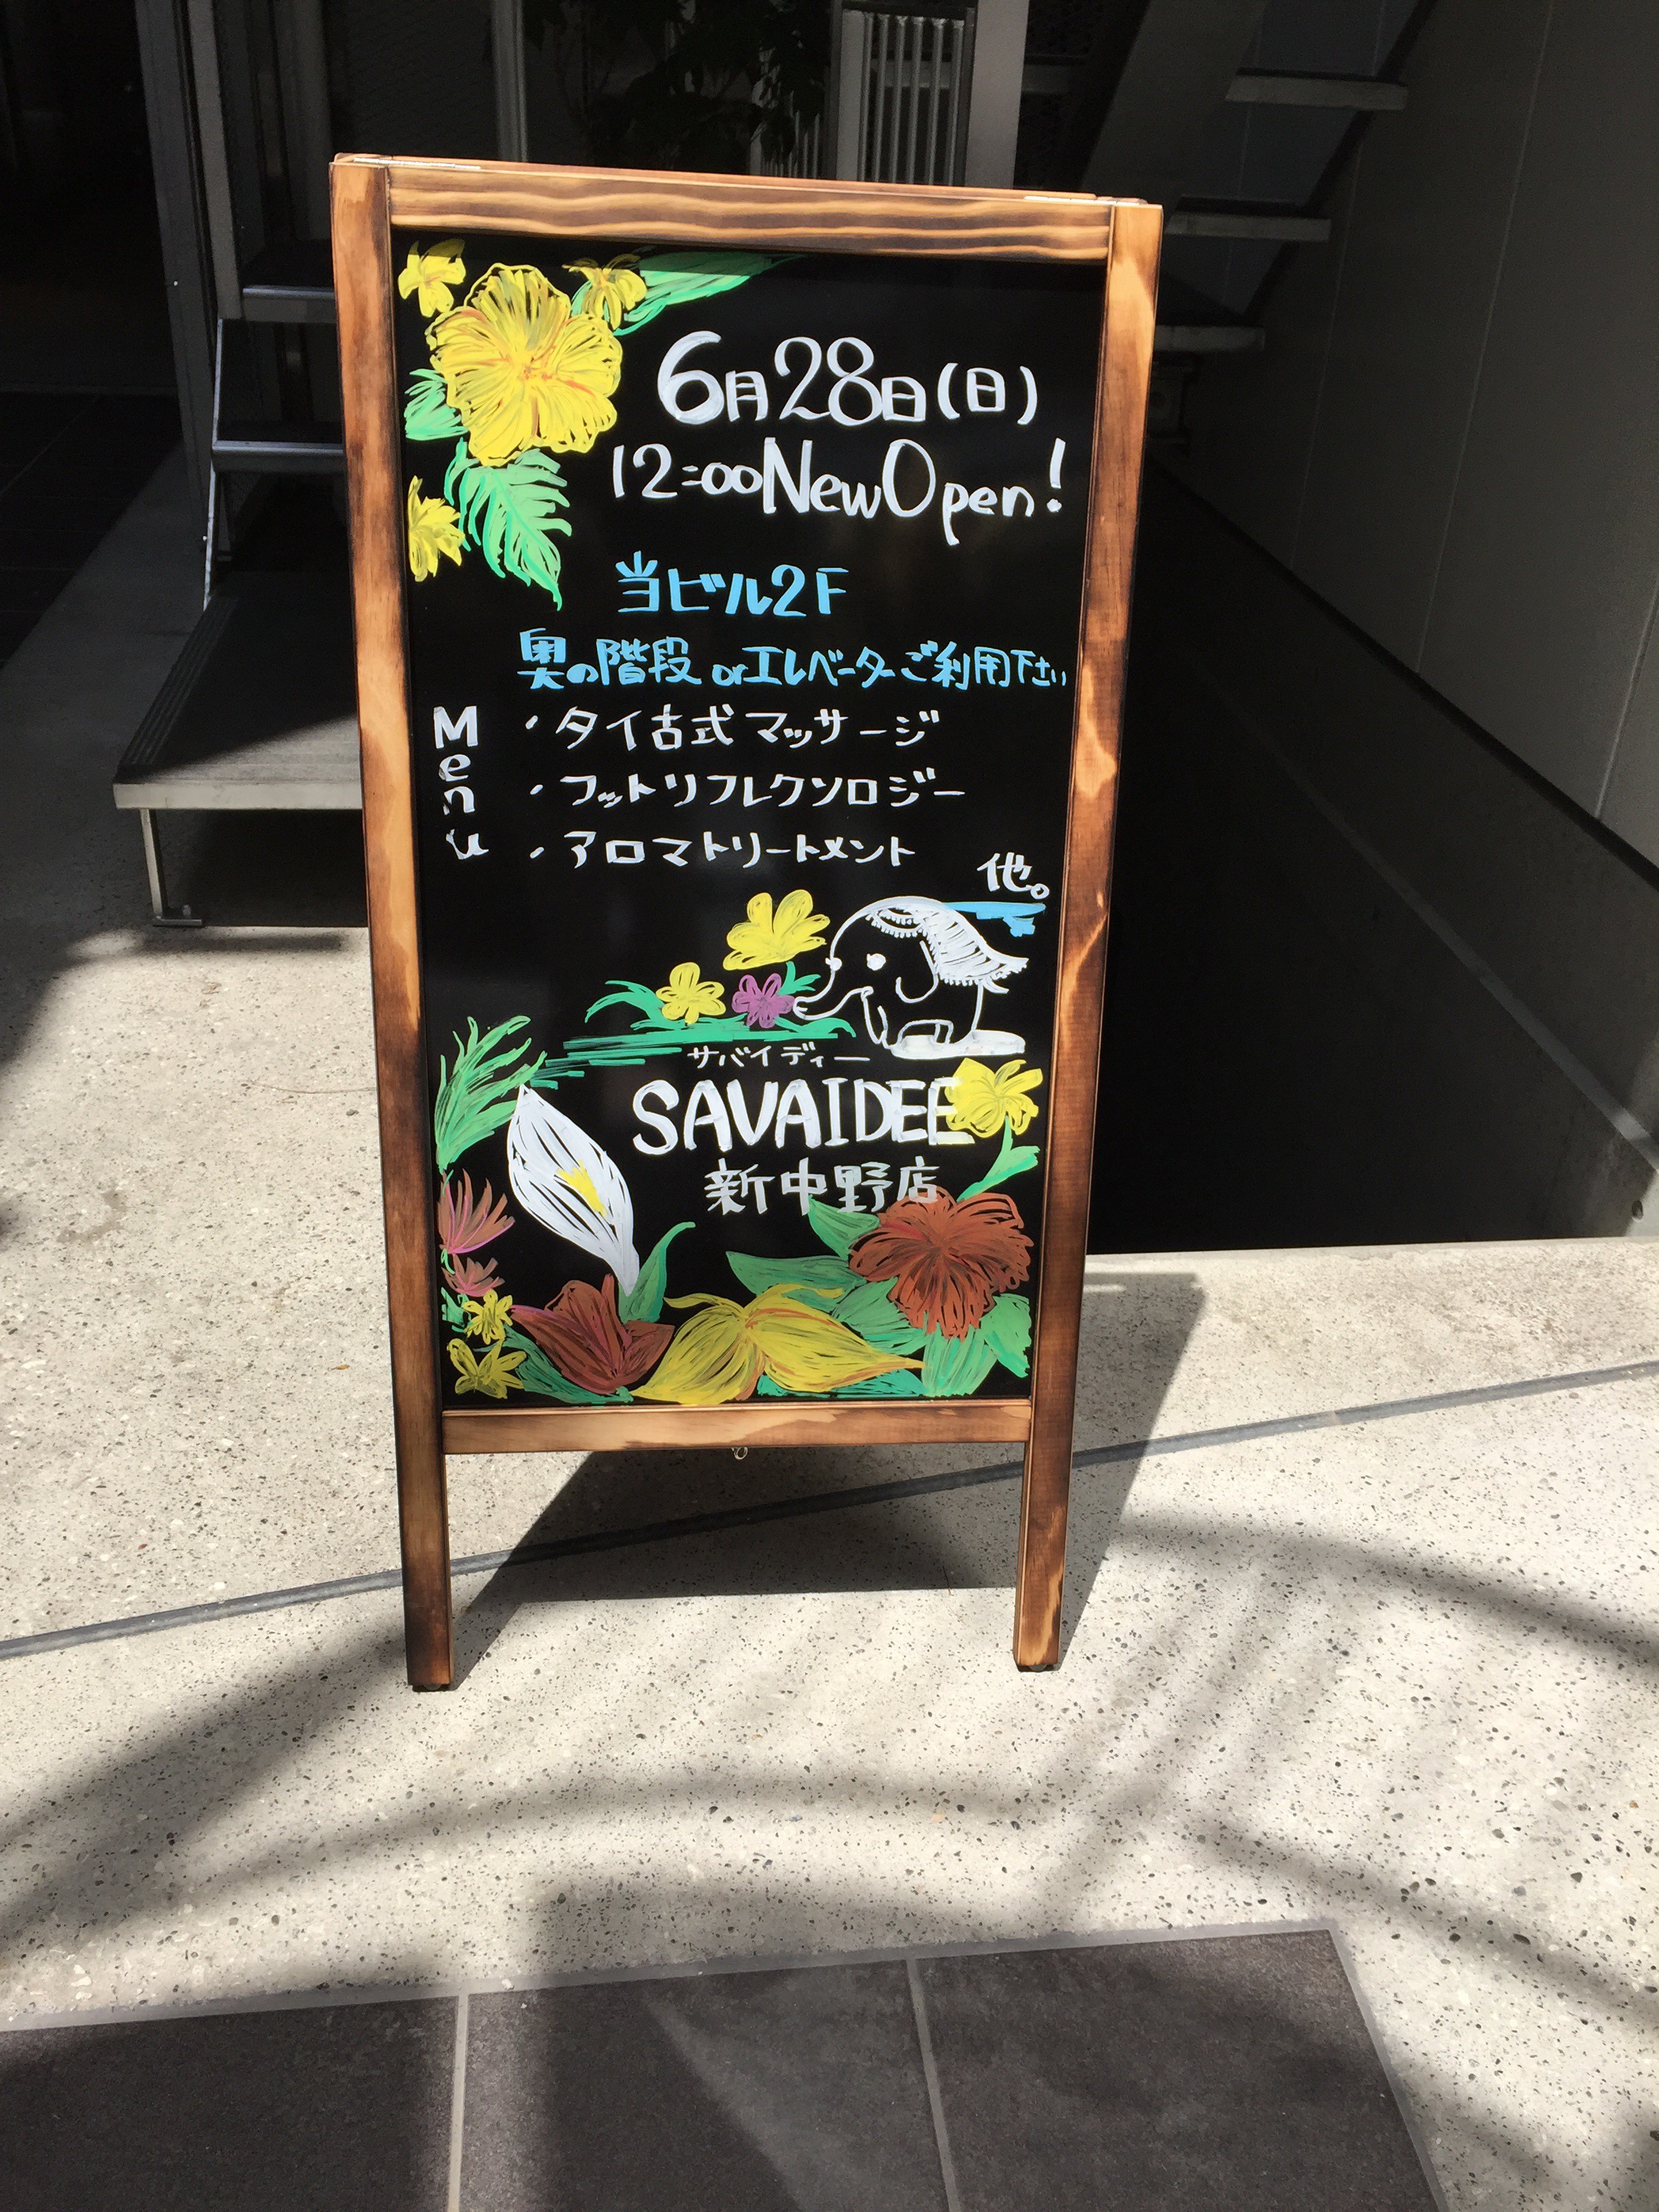 6月28日(日)
12:00 New Open!
当ビル2F
奥の階段 or エレベーターご利用下さい
Menu
・タイ古式マッサージ
・フットリフレクソロジー
・アロマトリートメント
他。
サバイディー
SAVAIDEE
新中野店